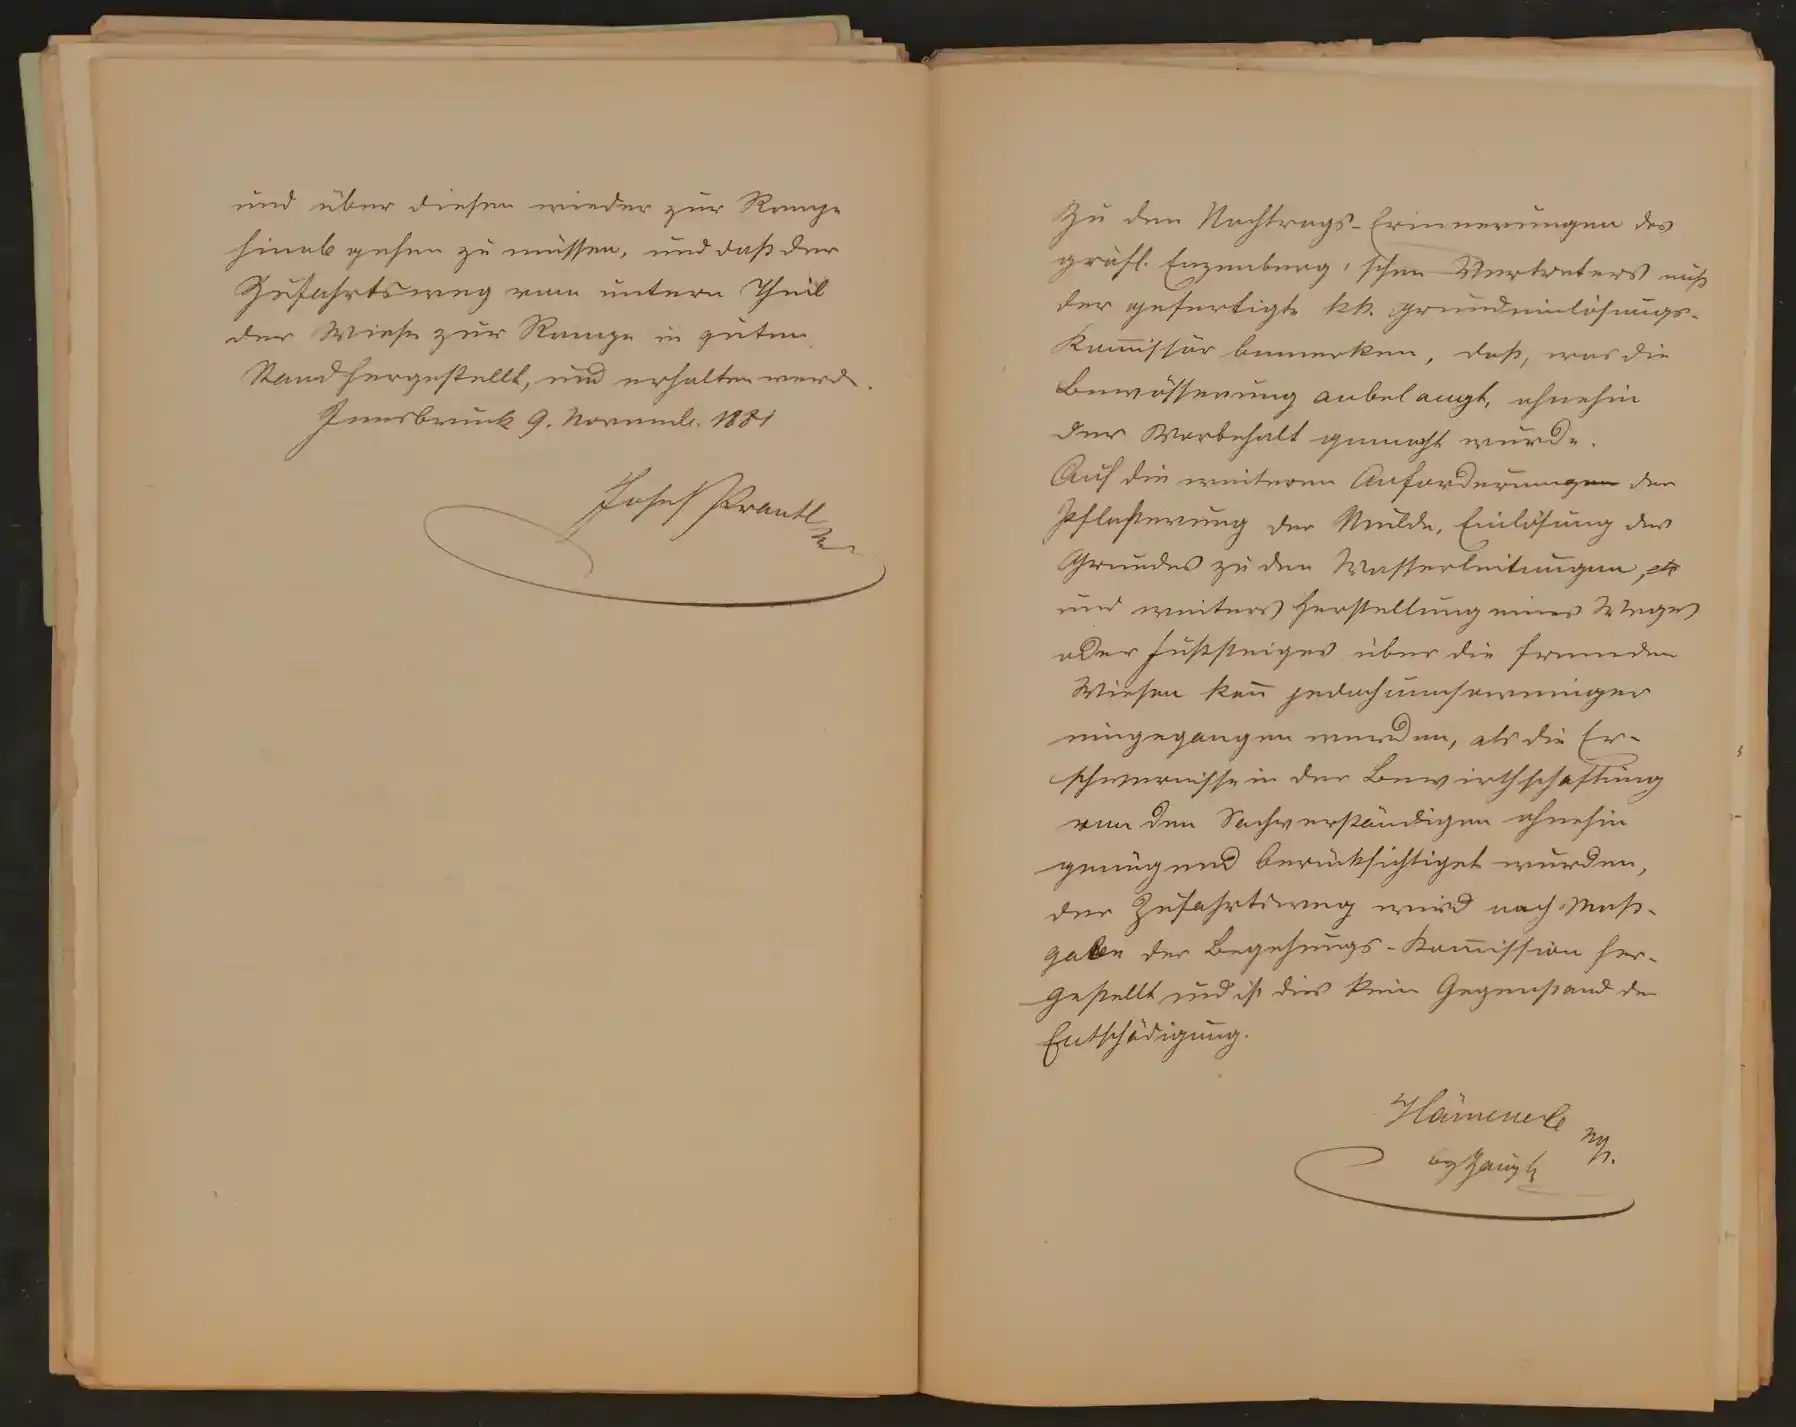 und über diesen wieder zur Rampe
hinab gehen zu müssen, und daß der
Zufahrtsweg vom untern Theil
der Wiese zur Rampe in guten
Stand hergestellt, und erhalten werde.
Innsbruck 9. Novemb. 1881
Josef Prantl
Zu den Nachtrags-Erinnerungen des
gräfl. Enzenberg'schen Vertreters muß
der gefertigte kk. Grundeinlösungs-
Kom̅issär bemerken, daß, was die
Bewässerung anbelangt, ohnehin
der Vorbehalt gemacht wurde.
Auf die weiteren Anforderungen der
Pflasterung der Mulde, Einlösung des
Grundes zu den Wasserleitungen,
und weiters Herstellung eines Weges
oder Fußsteiges über die fremden
Wiesen kan̅ jedoch umsoweniger
eingegangen werden, als die Er-
schwernisse in der Bewirthschaftung
von den Sachverständigen ohnehin
genügend berücksichtiget wurden,
der Zufahrtsweg wird nach Maß-
gabe der Begehungs-Kom̅ission her-
gestellt und ist dies kein Gegenstand der
Entschädigung.
Hämmerle
mp.